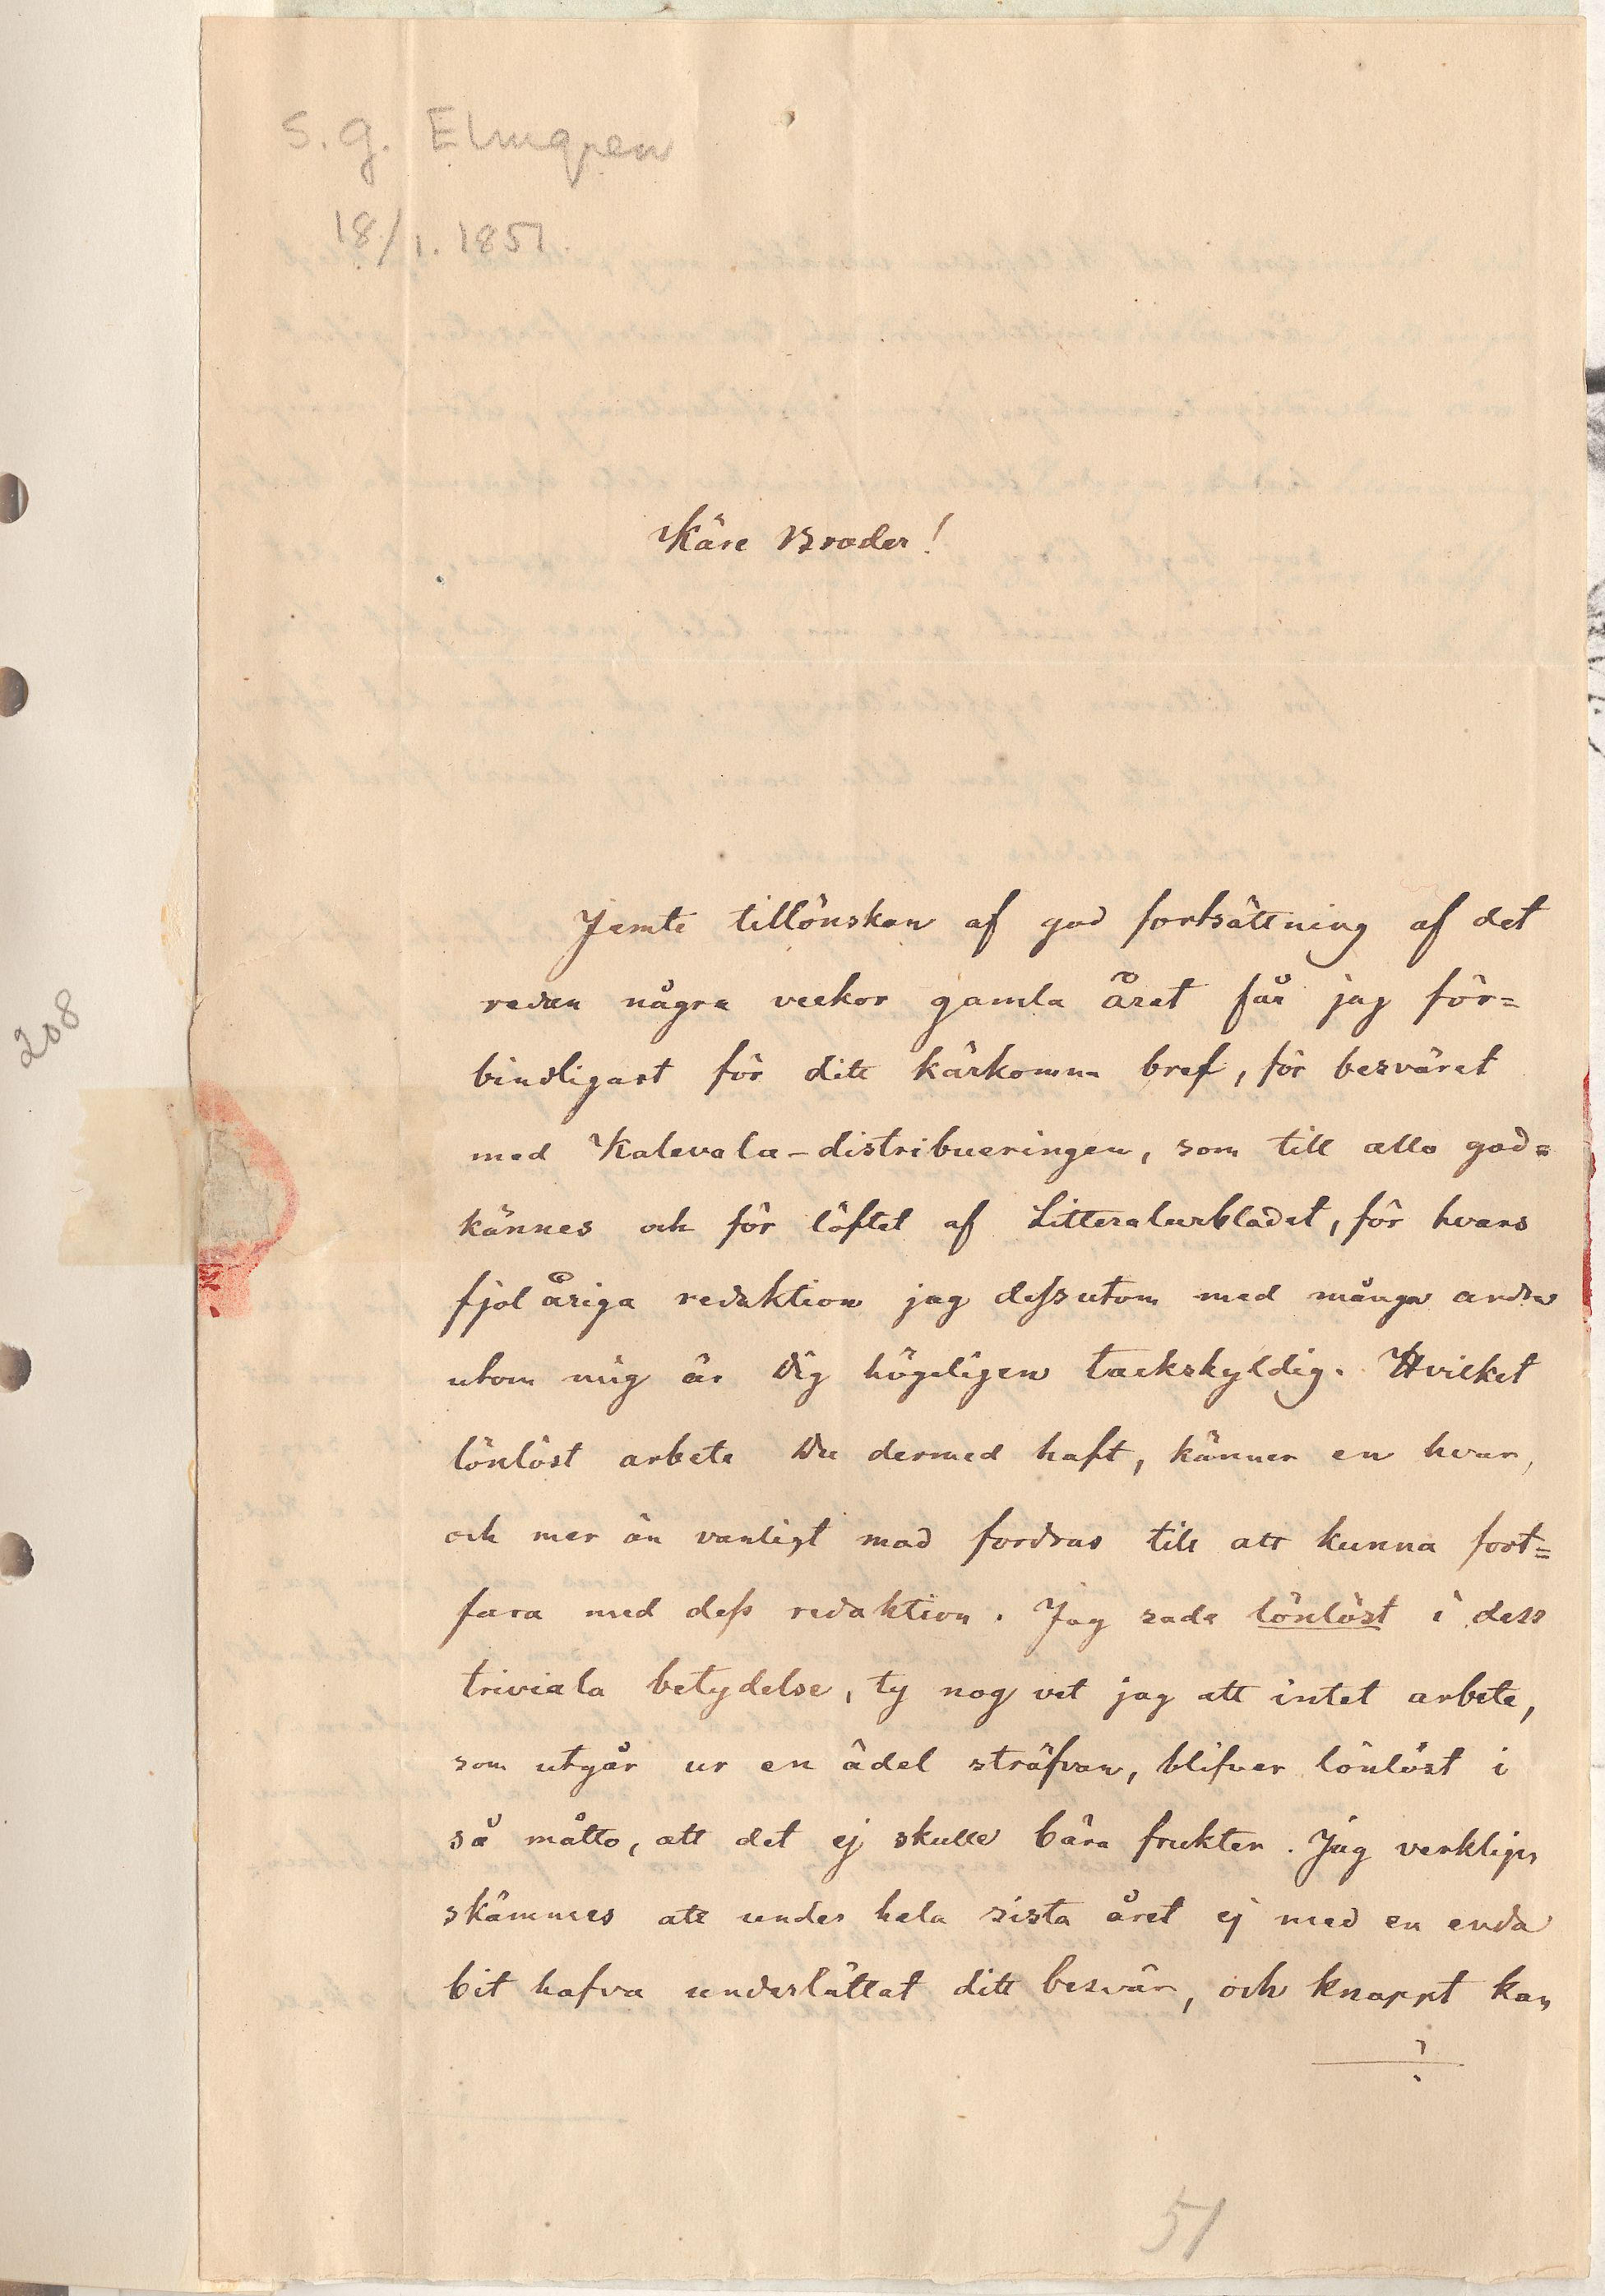 S. G. Elmgren
18/1. 1851.
Käre Broder!
Jemte tillönskan af god fortsättning af det
redan några veckor gamla året får jag för=
bindligast för ditt kärkomna bref, för besväret
med Kalevala-distribueringen, som till alla god=
kännes och för löftet af Litteraturbladet, för hvars
fjolåriga redaktion jag dessutom med många andra
utom mig är Dig högeligen tackskyldig. Hvilket
lönlöst arbete Du dermed haft, känner en hvar,
och mer än vanligt mod fordras till att kunna fort=
fara med dess redaktion. Jag sade lönlöst i dess
triviala betydelse, ty nog vet jag att intet arbete,
som utgår ur en ädel sträfvan, blifver lönlöst i
så måtto, att det ej skulle bära frukter. Jag verkligen
skämmes att under hela sista året ej med en enda
bit hafva underlättat ditt besvär, och knappt kan
208
51